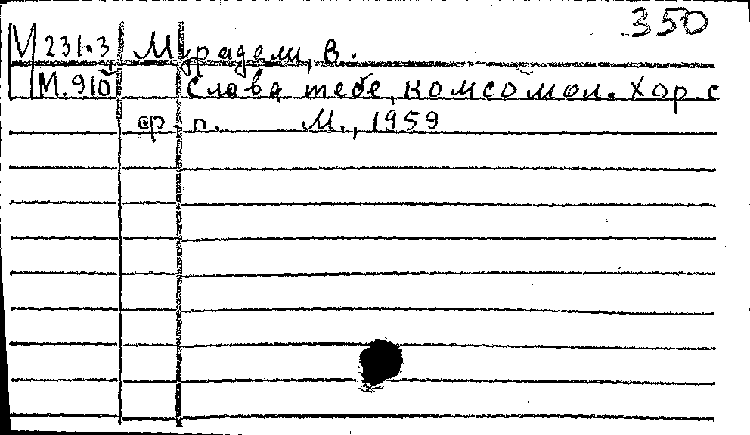 350
М 231.3 Мурадели, В.
М.910 Слава тебе, комсомол. Хор с
ор. п. М., 1959